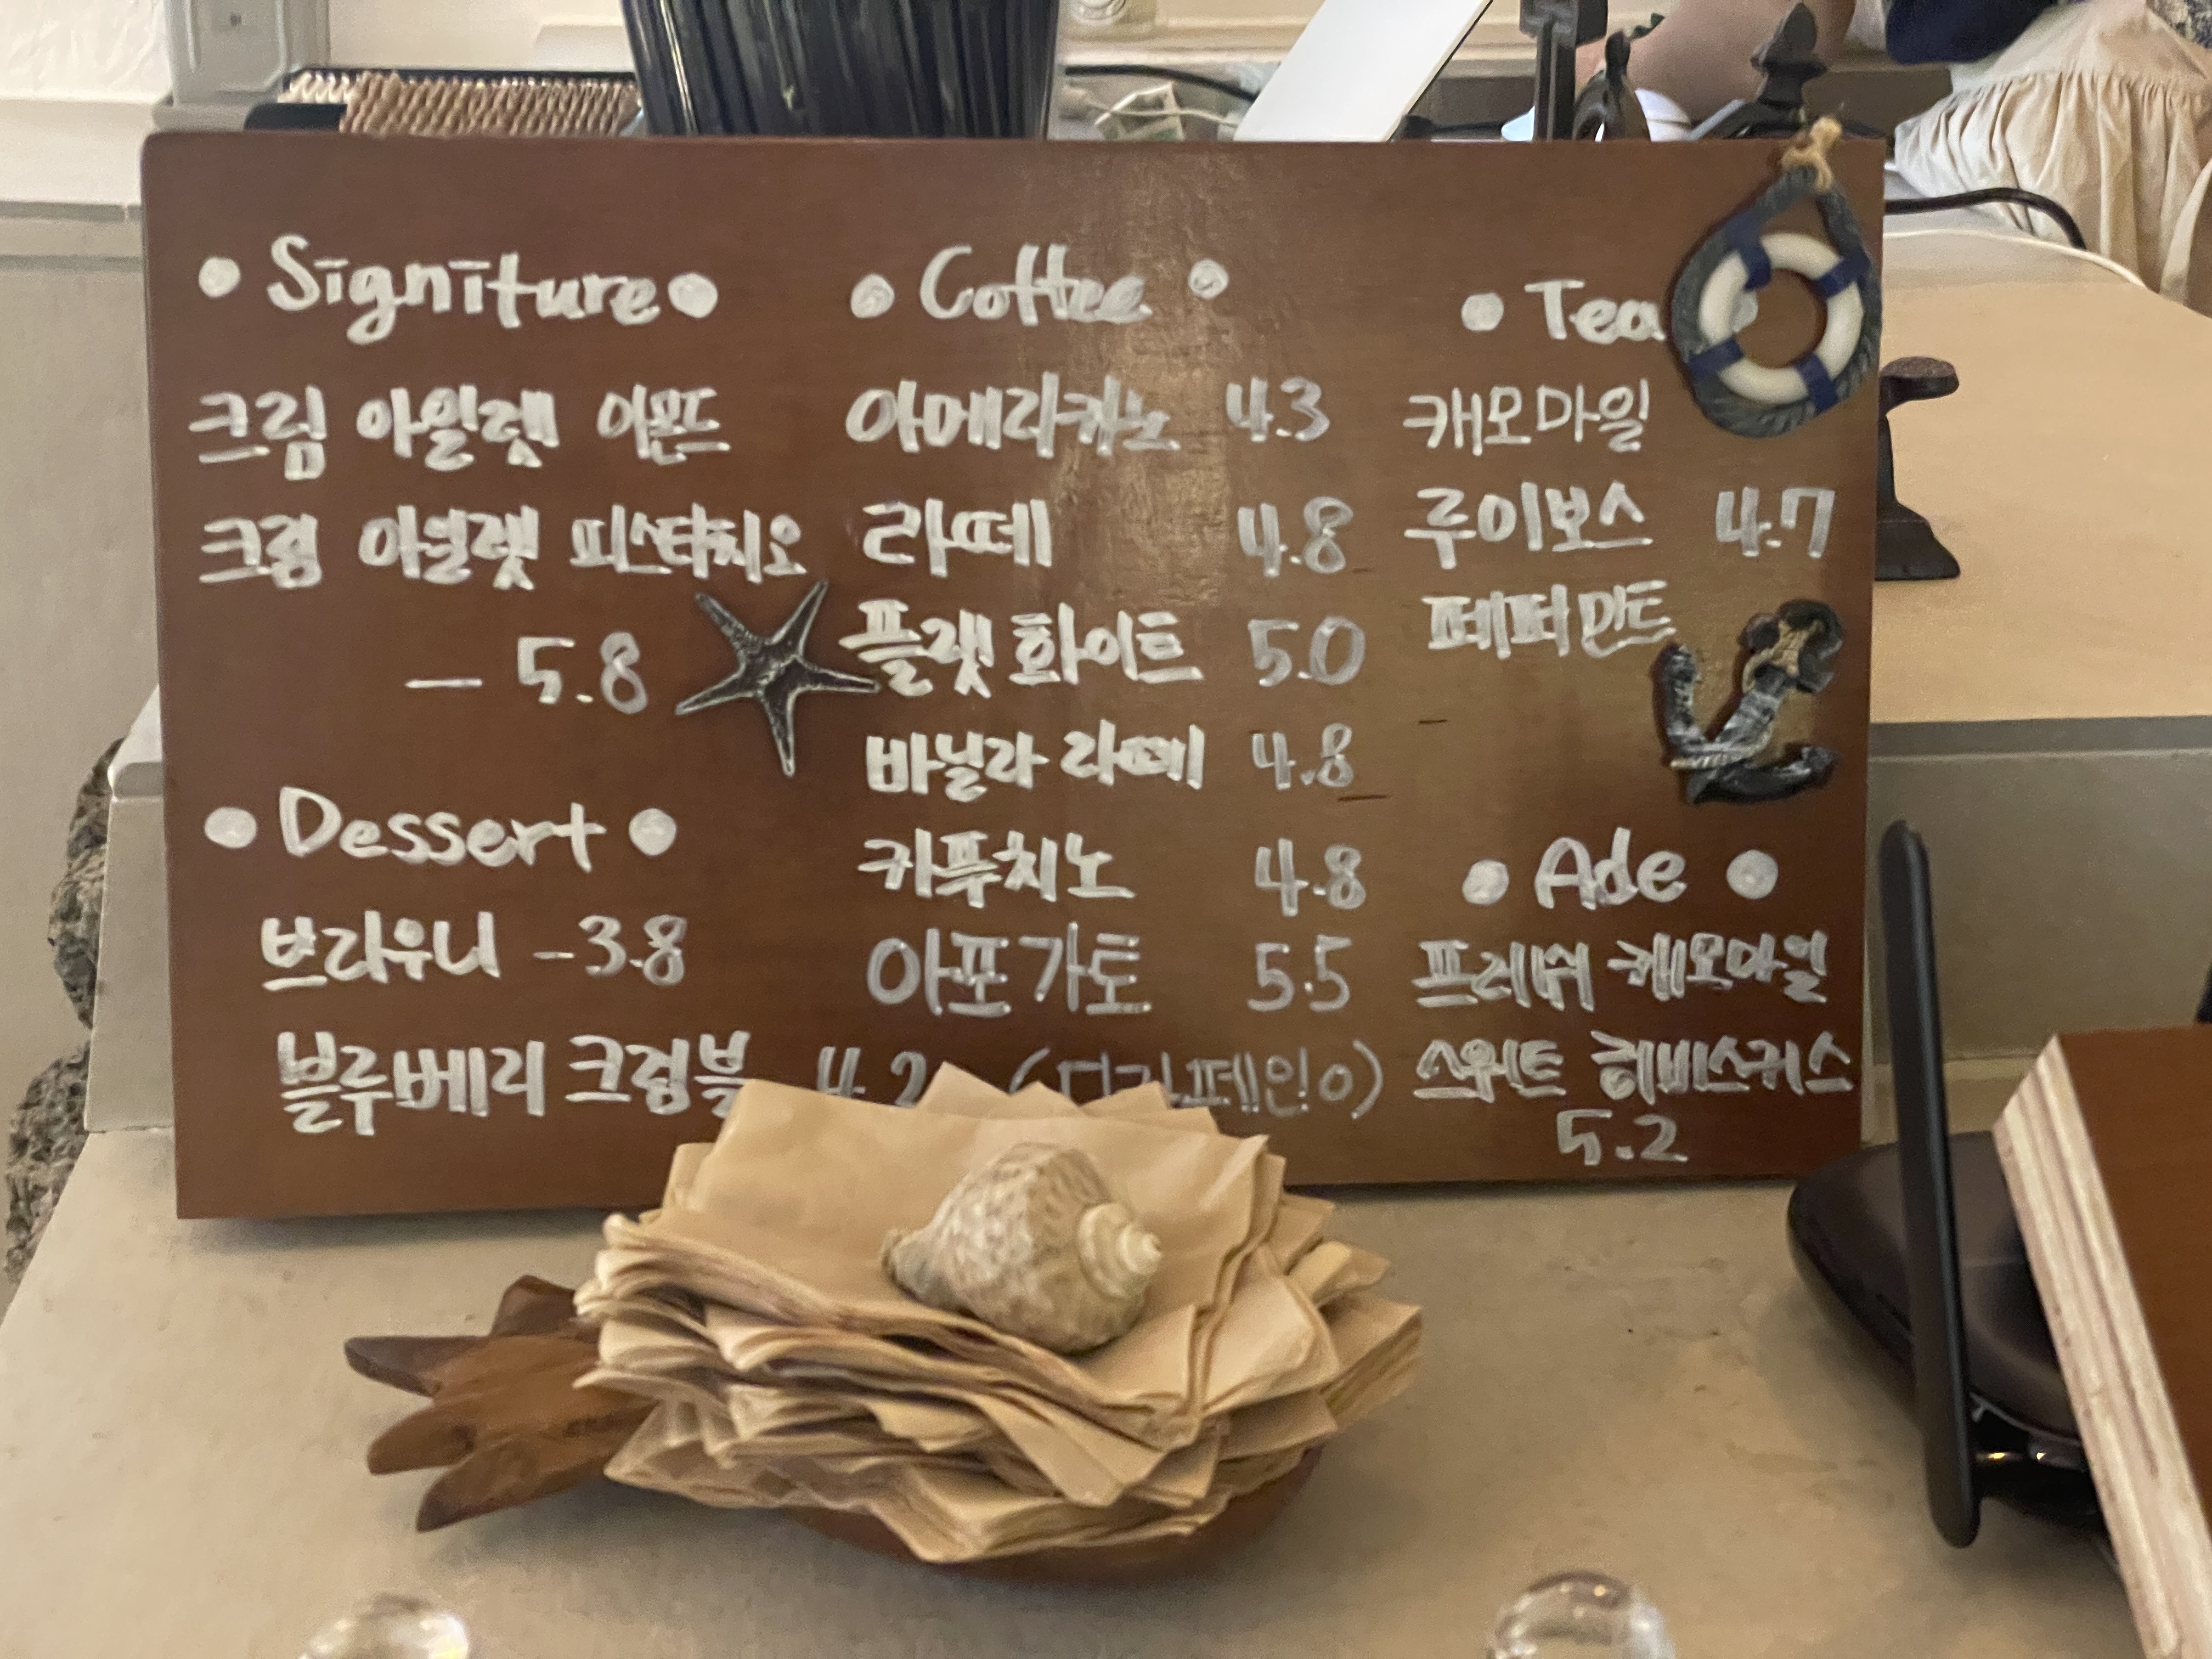 • Signiture •
크림 아일렛 아몬드
크림 아일렛 피스타치오
- 5.8
• Dessert •
브라우니 - 3.8
블루베리 크럼블 4.2
• Coffee •
아메리카노 4.3
라떼 4.8
플랫 화이트 5.0
바닐라 라떼 4.8
카푸치노 4.8
아포가토 5.5
(디카페인 o)
• Tea •
캐모마일
루이보스 4.7
페퍼민트
• Ade •
프레쉬 캐모마일
스위트 히비스커스
5.2